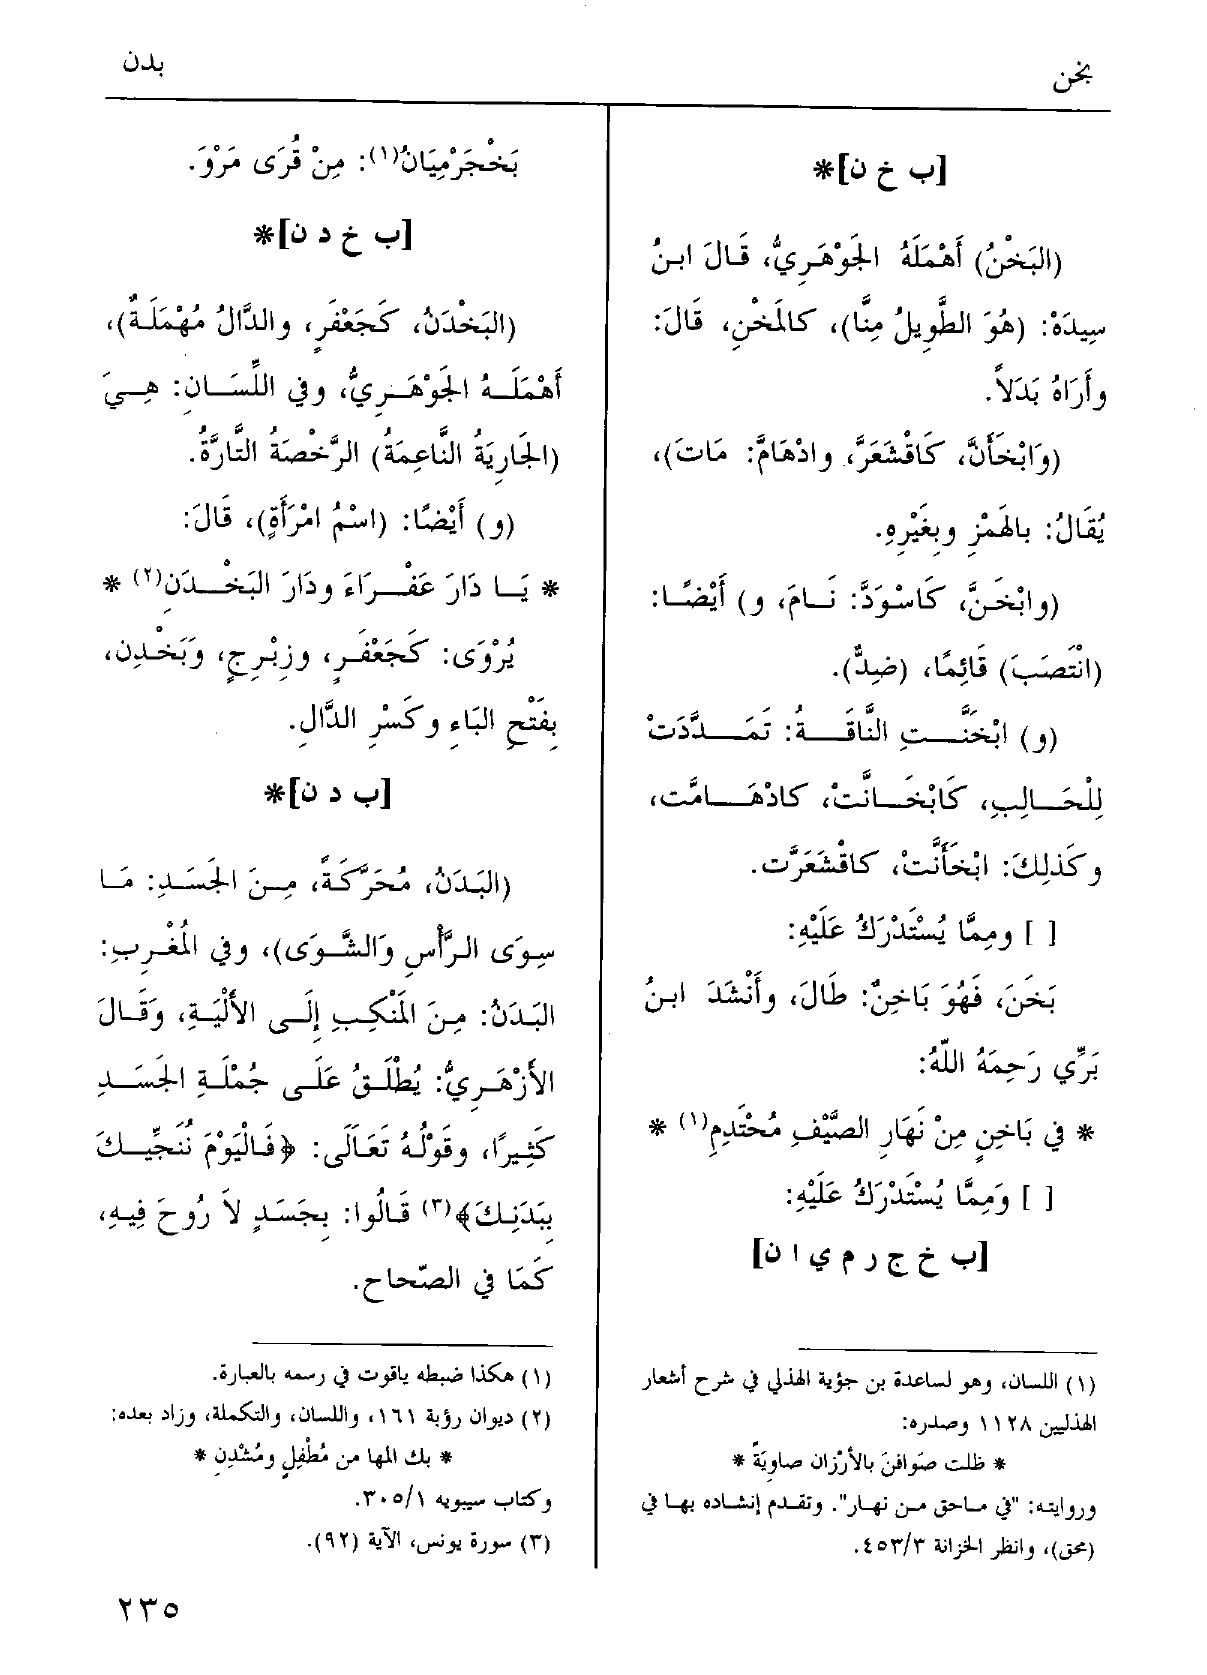 بخن
بدن
[ب خ ن]*
(البَخْنُ) أَهْمَلَهُ الجَوْهَرِيُّ، قَالَ ابنُ
سِيدَهْ: (هُوَ الطَّوِيلُ مِنَّا)، كالمَخْنِ، قَالَ:
وأُرَاهُ بَدَلاً.
(وَابْخَأَنَّ، كَاقْشَعَرَّ، وادْهَامَّ: مَاتَ)،
يُقَالُ: بالهَمْزِ وبِغَيْرِهِ.
(وابْخَنَّ، كَاسْوَدَّ: نَامَ، و) أَيْضًا:
(انْتَصَبَ) قَائِمًا، (ضِدٌّ).
(و) ابْخَنَّتِ النَّاقَةُ: تَمَدَّدَتْ
لِلْحَالِبِ، كَابْخَانَّتْ، كادْهَامَّت،
وكَذلِكَ: ابْخَأَنَّتْ، كاقْشَعَرَّت.
[ ] ومِمَّا يُسْتَدْرَكُ عَلَيْهِ:
بَخَنَ، فَهُوَ بَاخِنٌ: طَالَ، وأَنْشَدَ ابنُ
بَرِّي رَحِمَهُ اللهُ:
* في بَاخِنٍ مِنْ نَهَارِ الصَّيْفِ مُحْتَدِمِ(١) *
[ ] وَمِمَّا يُسْتَدْرَكُ عَلَيْهِ:
[ب خ ج ر م ي ا ن]
(١) اللسان، وهو لساعدة بن جؤية الهذلي في شرح أشعار
الهذليين ١١٢٨ وصدره:
* ظلت صَوافنَ بالأَرْزان صاويَةً *
وروايته: "في ماحق من نهار". وتقدم إنشاده بها في
(محق)، وانظر الخزانة ٤٥٣/٣.
بَخْجَرْمِيَانُ(١): مِنْ قُرَى مَرْوَ.
[ب خ د ن]*
(البَخْدَنُ، كَجَعْفَرٍ، والدَّالُ مُهْمَلَةٌ)،
أَهْمَلَهُ الجَوْهَرِيُّ، وفي اللِّسَانِ: هِيَ
(الجَارِيَةُ النَّاعِمَةُ) الرَّخْصَةُ التَّارَّةُ.
(و) أَيْضًا: (اسْمُ امْرَأَةٍ)، قَالَ:
* يَا دَارَ عَفْرَاءَ ودَارَ البَخْدَنِ(٢) *
يُرْوَى: كَجَعْفَرٍ، وزِبْرِجٍ، وَبَخْدِن،
بِفَتْحِ البَاءِ وكَسْرِ الدَّالِ.
[ب د ن]*
(البَدَنُ، مُحَرَّكَةً، مِنَ الجَسَدِ: مَا
سِوَى الرَّأْسِ وَالشَّوَى)، وفي المُغْرِبِ:
البَدَنُ: مِنَ المَنْكِبِ إِلَى الأَلْيَةِ، وَقَالَ
الأَزْهَرِيُّ: يُطْلَقُ عَلَى جُمْلَةِ الجَسَدِ
كَثِيرًا، وقَوْلُهُ تَعَالَى: ﴿فَالْيَوْمَ نُنَجِّيكَ
بِبَدَنِكَ﴾(٣) قَالُوا: بِجَسَدٍ لاَ رُوحَ فِيهِ،
كَمَا في الصّحاحِ.
(١) هكذا ضبطه ياقوت في رسمه بالعبارة.
(٢) ديوان رؤبة ١٦١، واللسان، والتكملة، وزاد بعده:
* بك المها من مُطْفِلٍ ومُشْدِنِ *
وكتاب سيبويه ٣٠٥/١.
(٣) سورة يونس، الآية (٩٢).
٢٣٥